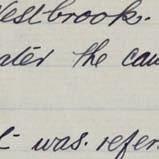 Westbrooks.
ater the cau
t was. refer